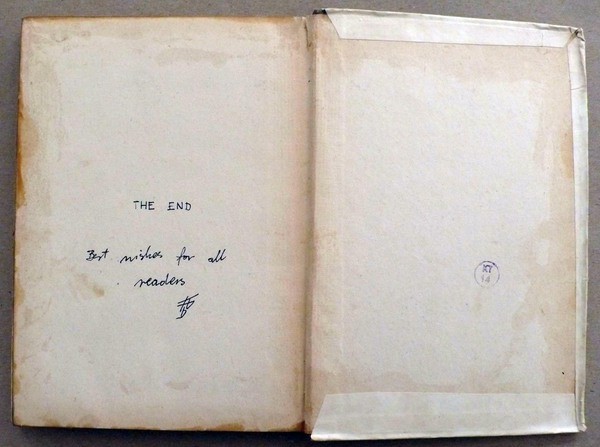 THE END
Best wishes for all
readers